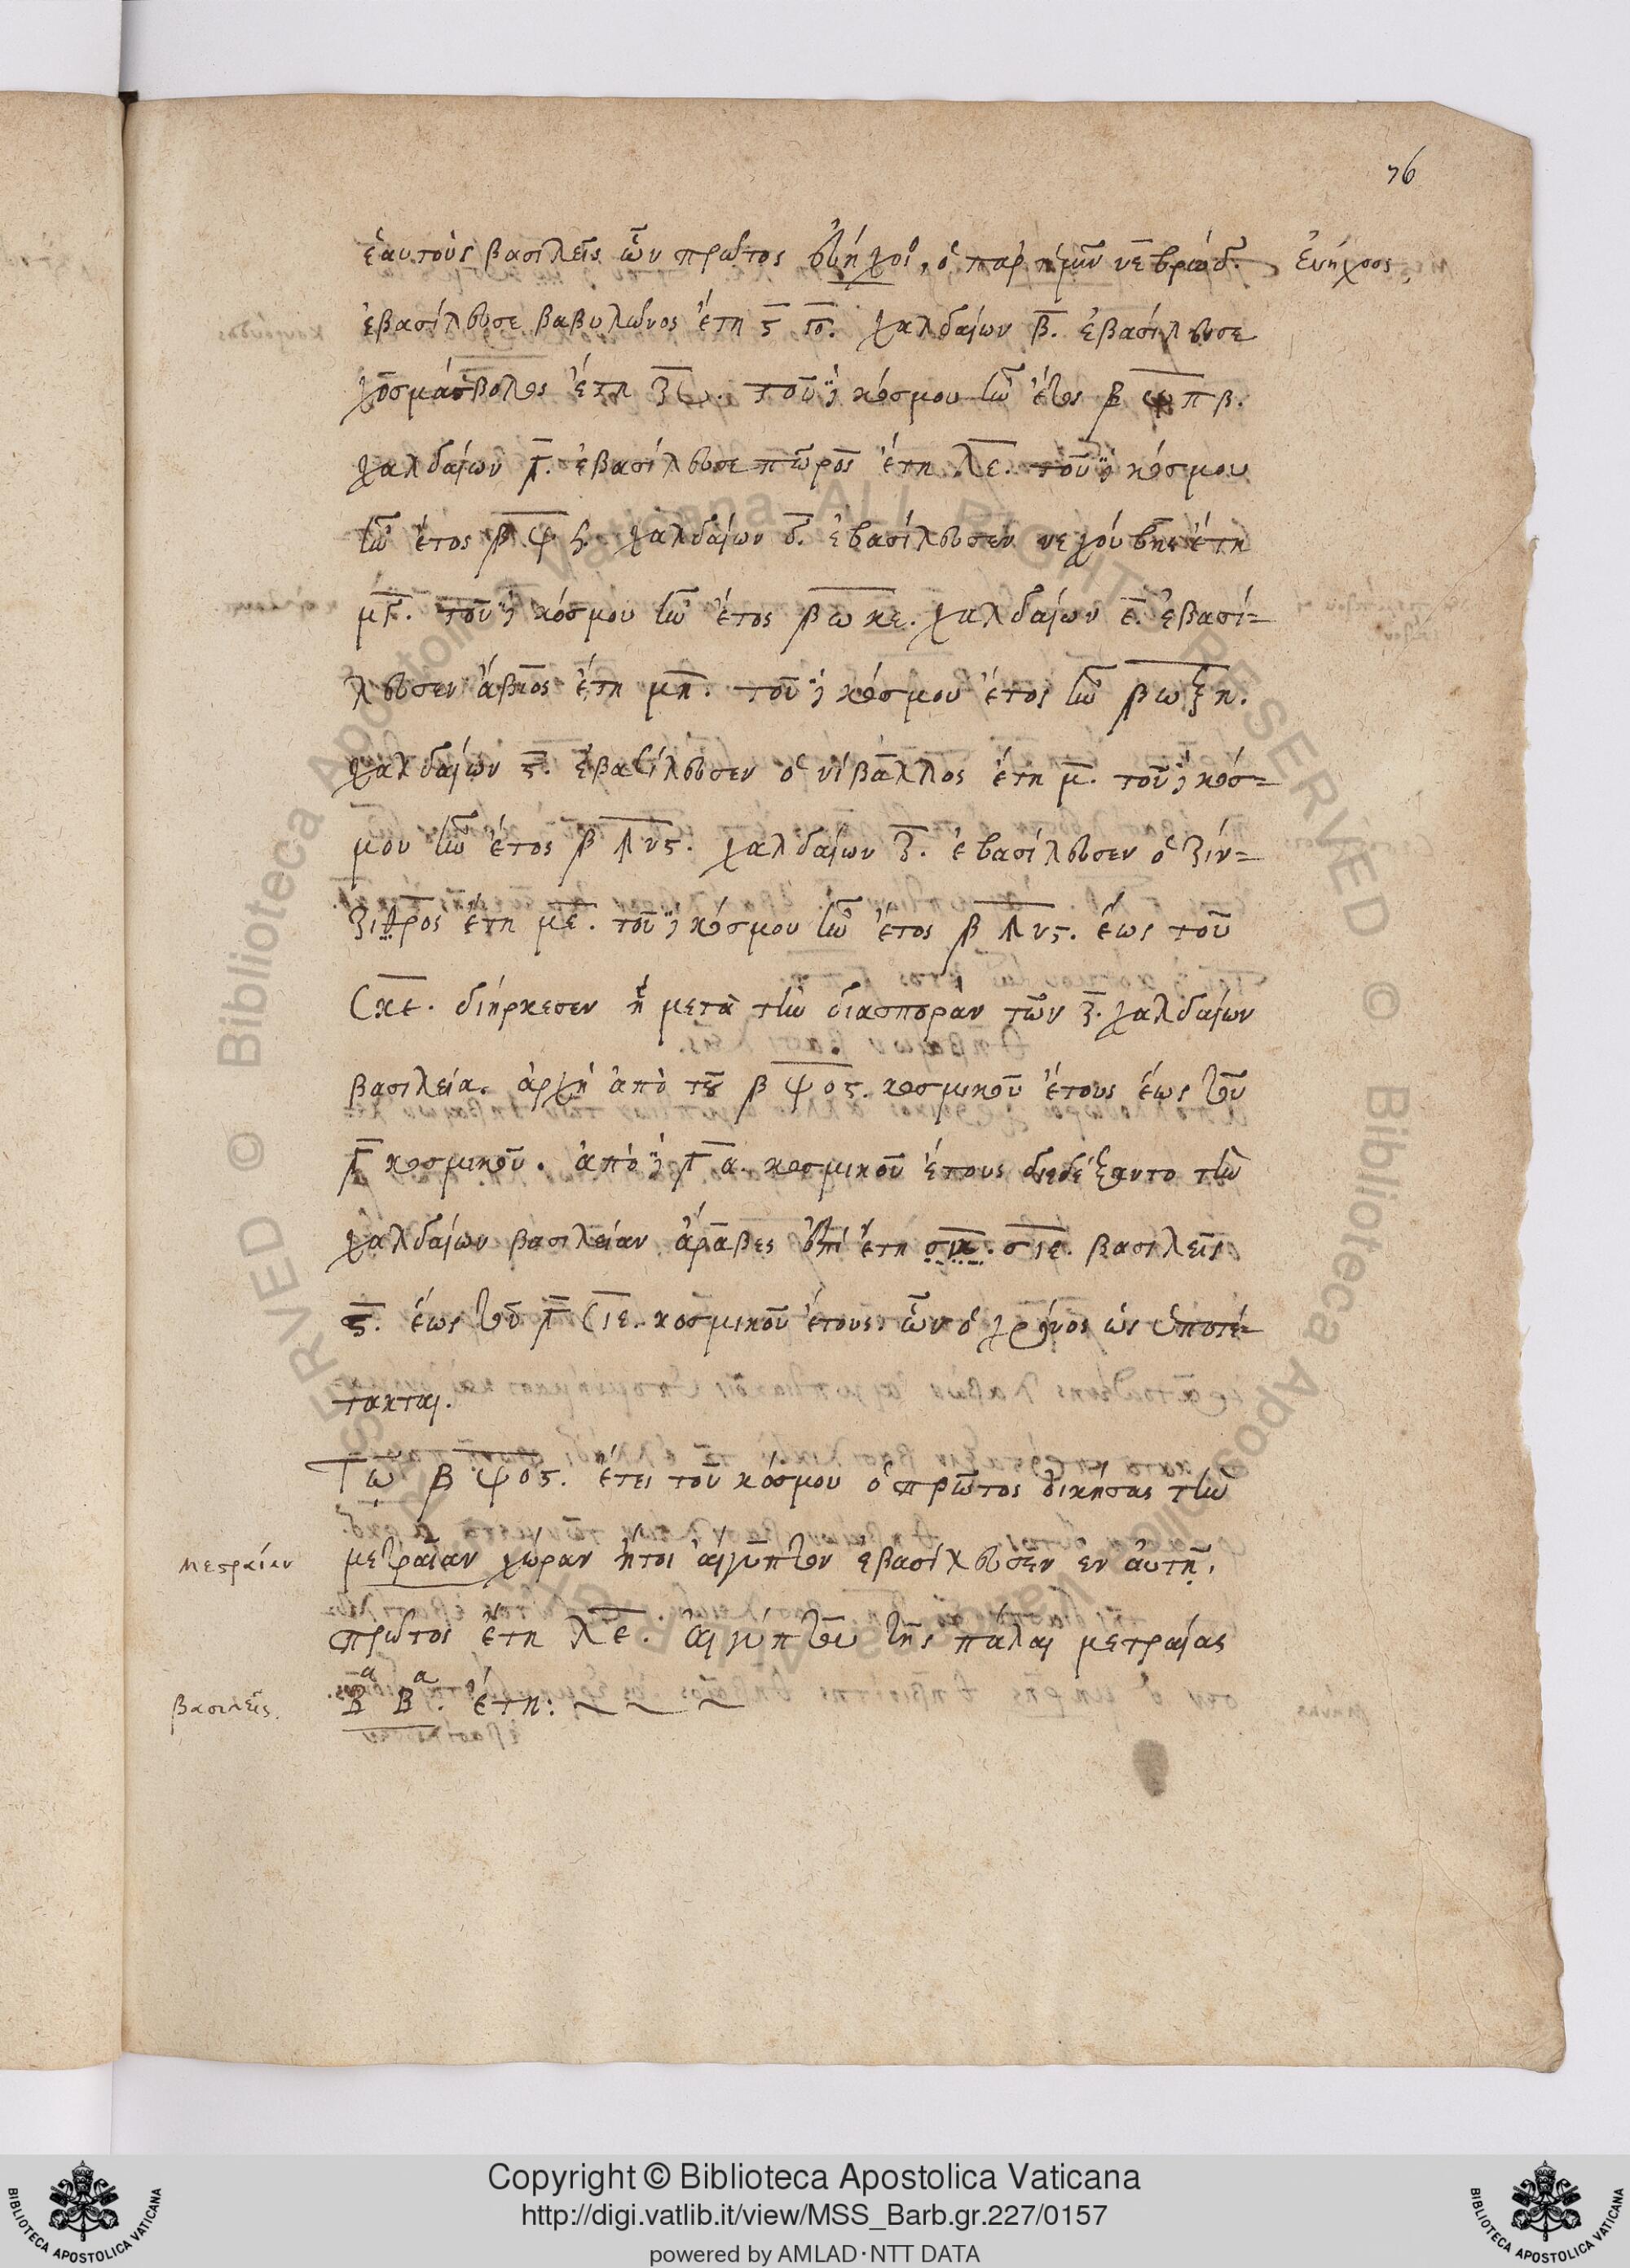 76
ἑαυτοὺς βασιλεῖς ὧν πρῶτος εὐήχοος, ὁ παρ' ἡμῖν νεβρώδ. Ἐυήχοος,
ἐβασίλευσε βαβυλῶνος ἔτη ς . χαλδαίων β. ἐβασίλευσε
χοσμάσβολος ἔτη ζ . τοῦ δὲ κόσμου ἦν ἔτος β ψ π β.
χαλδαίων γ. ἐβασίλευσε πῶρος ἔτη λε. τοῦ δὲ κόσμου
ἦν ἔτος β ψ ϟ. χαλδαίων δ. ἐβασίλευσεν νεχούβης ἔτη
μγ. τοῦ δὲ κόσμου ἦν ἔτος β ω κε. χαλδαίων ε. ἐβασί-
λευσεν ἄβιος ἔτη μη. τοῦ δὲ κόσμου ἔτος ἦν β ω ξη.
χαλδαίων ς. ἐβασίλευσεν ὁ νίβαλλος ἔτη μ. τοῦ δὲ κόσ-
μου ἦν ἔτος β ϡ νς. χαλδαίων ζ. ἐβασίλευσεν ὁ ζιν-
ζιθρος ἔτη με. τοῦ δὲ κόσμου ἦν ἔτος β ϡ νς. ἕως τοῦ
σκε. διήρκεσεν ἡ μετὰ τὴν διασποραν τῶν ζ. χαλδαίων
βασιλεία. ἀρχὴ ἀπὸ τοῦ β ψ ος. κοσμικοῦ ἔτους ἕως τοῦ
γ κοσμικοῦ. ἀπὸ δὲ γ α. κοσμικοῦ ἔτους διεδέξαντο τὴν
χαλδαίων βασιλείαν ἄραβες ἐπὶ ἔτη σιε. βασιλεῖς
ς. ἕως τοῦ γ σιε. κοσμικοῦ ἔτους. ὧν ὁ χρόνος ὡς ὑποτέ-
τακται.
Τῶ β ψ ος. ἔτει τοῦ κόσμου ὁ πρῶτος οἰκήσας τὴν
μεσραίαν μετραῖαν χώραν ἤτοι αἴγυπτον ἐβασίλευσεν ἐν ἀυτῇ,
πρῶτος ἔτη λε. αἰγύπτου τῆς πάλαι μετραίας
βασιλεῖς. Βα Βα. ἔτη:
Copyright © Biblioteca Apostolica Vaticana
http://digi.vatlib.it/view/MSS_Barb.gr.227/0157
powered by AMLAD·NTT DATA
BIBLIOTECA APOSTOLICA VATICANA
BIBLIOTECA APOSTOLICA VATICANA